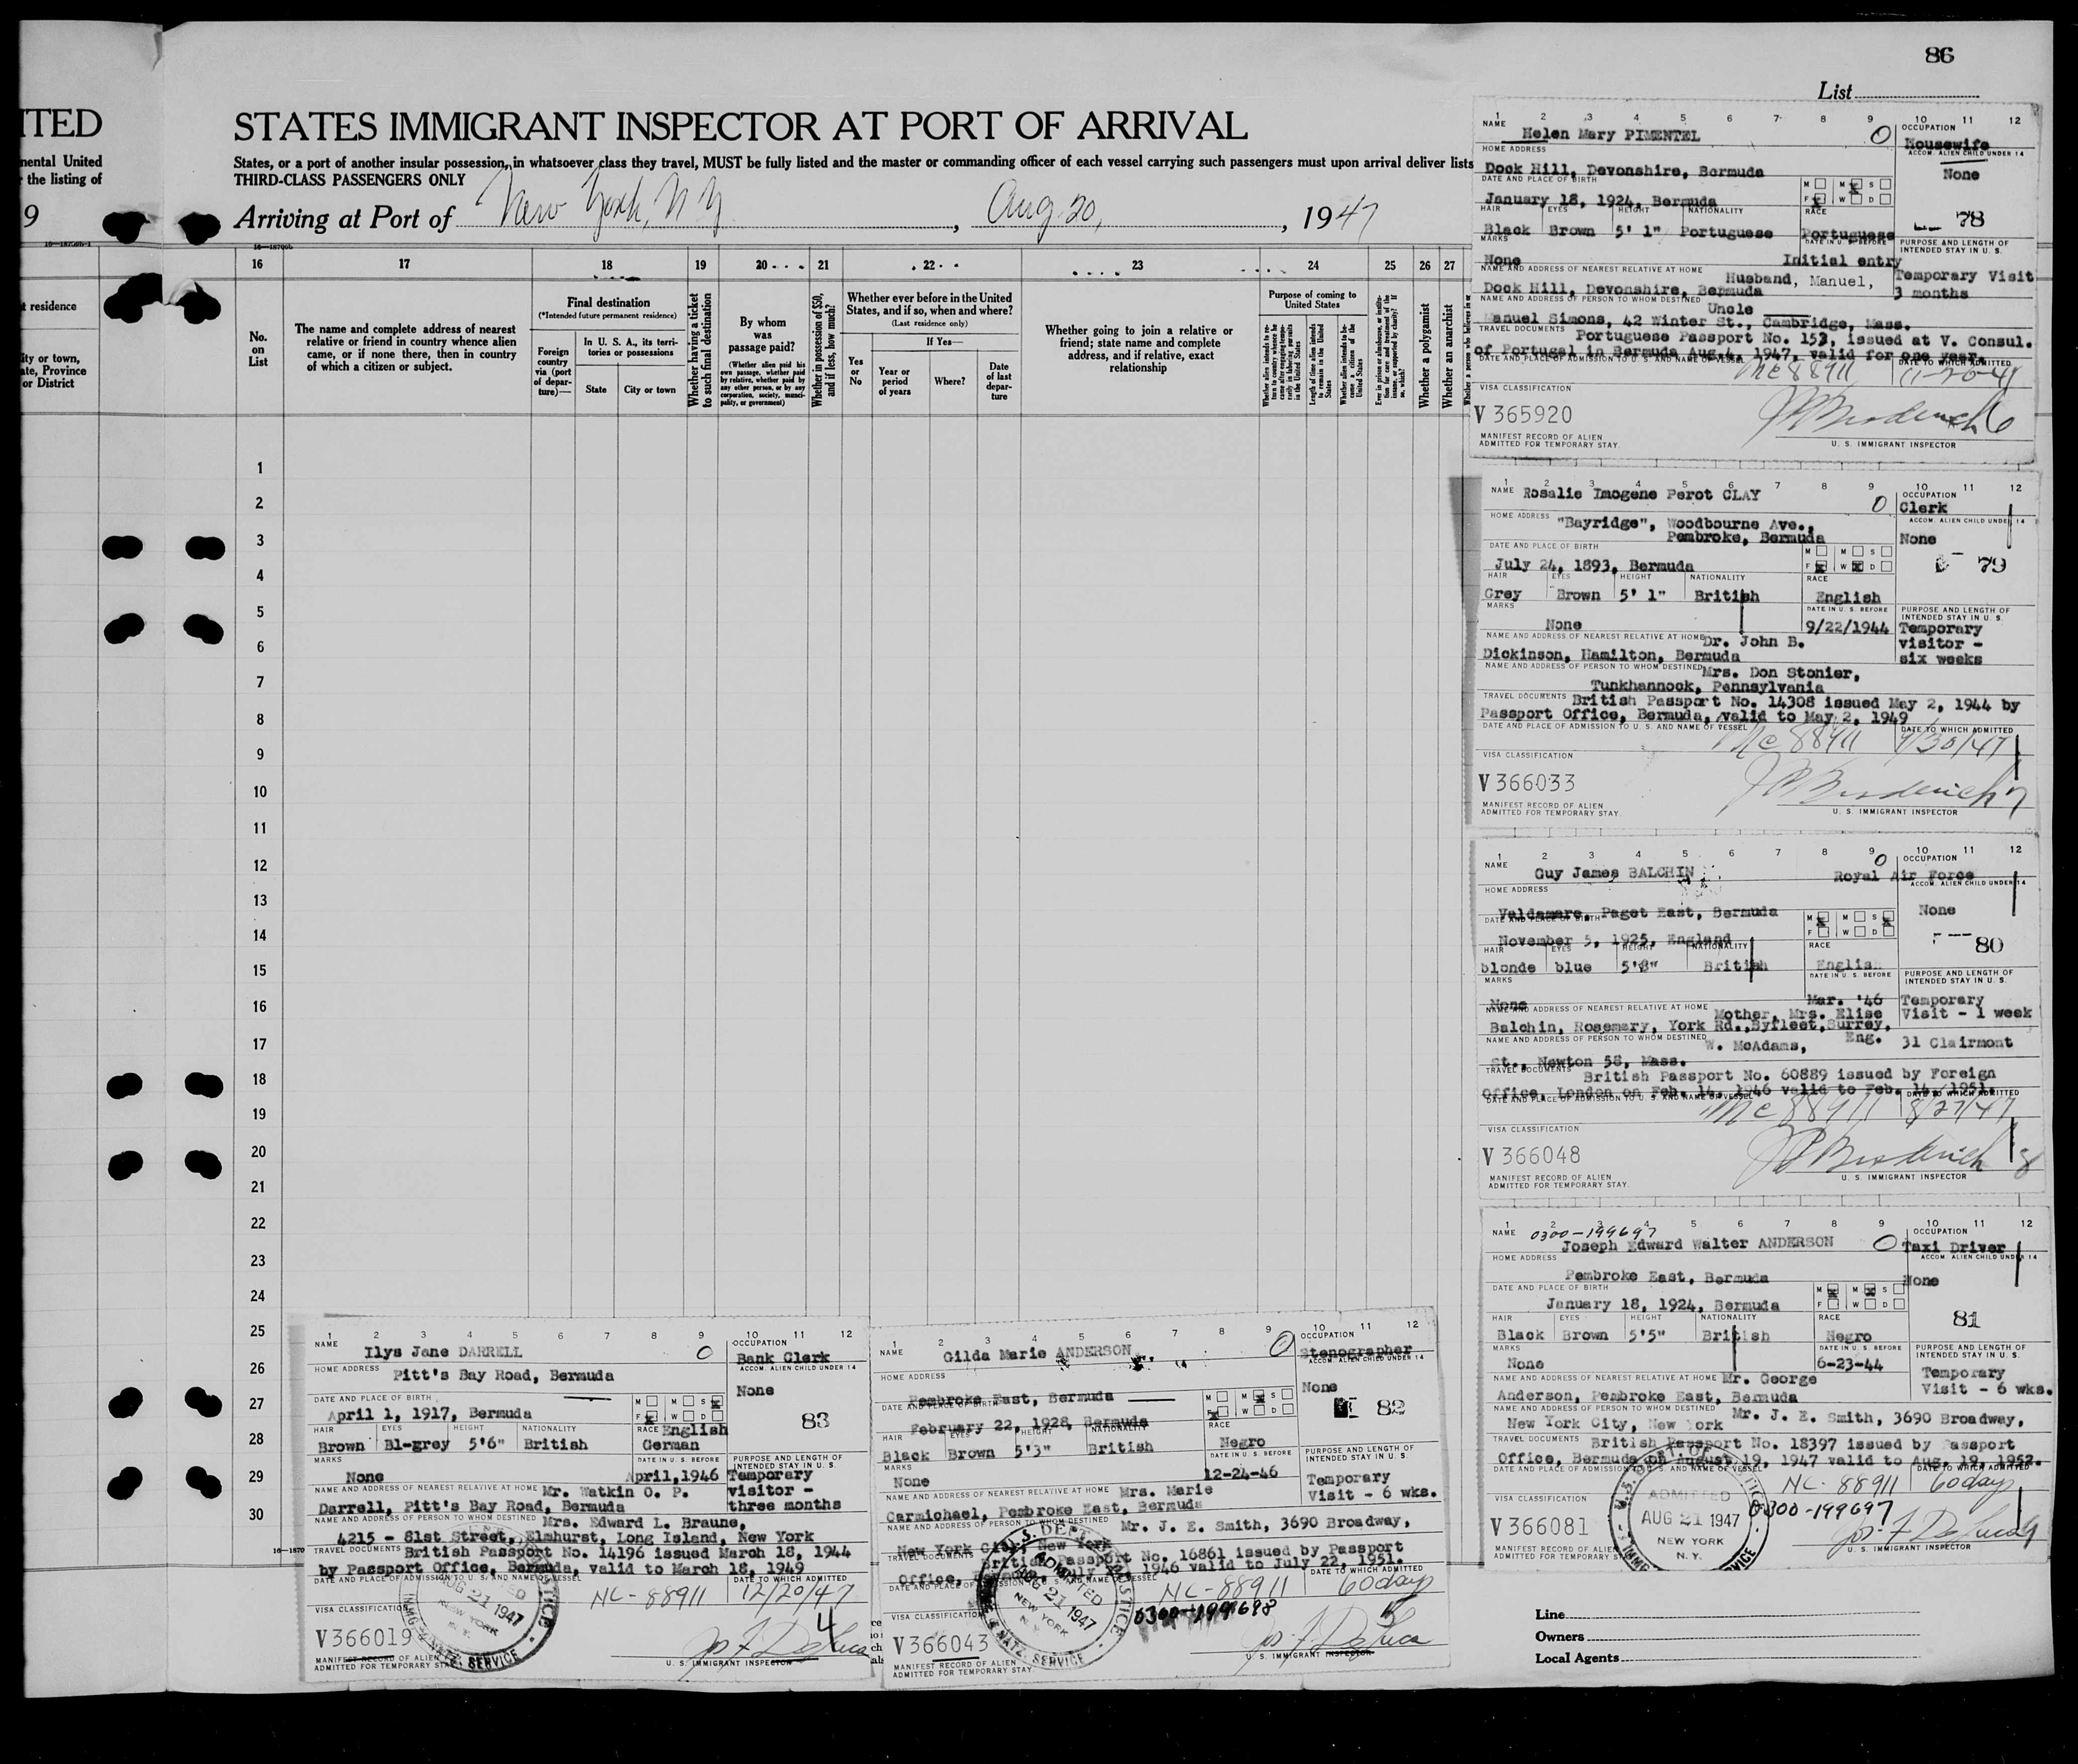 86
List
ITED
STATES IMMIGRANT INSPECTOR AT PORT OF ARRIVAL
nental United
the listing of
States, or a port of another insular possession, in whatsoever class they travel, MUST be fully listed and the master or commanding officer of each vessel carrying such passengers must upon arrival deliver lists
THIRD-CLASS PASSENGERS ONLY
9
Arriving at Port of New York, N Y, Aug 20, 1947
16 17 18 19 20 21 22 23 24 25 26 27
t residence
ity or town,
ate, Province
or District
No. on List
The name and complete address of nearest relative or friend in country whence alien came, or if none there, then in country of which a citizen or subject.
Final destination
(*Intended future permanent residence)
Foreign country via (port of departure)—
In U. S. A., its territories or possessions
State
City or town
Whether having a ticket to such final destination
By whom was passage paid?
(Whether alien paid his own passage, whether paid by relative, whether paid by any other person, or by any corporation, society, municipality, or government)
Whether in possession of $50, and if less, how much?
Whether ever before in the United States, and if so, when and where?
(Last residence only)
Yes or No
If Yes—
Year or period of years
Where?
Date of last departure
Whether going to join a relative or friend; state name and complete address, and if relative, exact relationship
Purpose of coming to United States
Length of time alien intends to remain in the United States
Whether alien intends to become a citizen of the United States
Whether a polygamist
Whether an anarchist
1
2
3
4
5
6
7
8
9
10
11
12
13
14
15
16
17
18
19
20
21
22
23
24
25
26
27
28
29
30
1 2 3 4 5 6 7 8 9 10 11 12
NAME Helen Mary PIMENTEL 0
OCCUPATION Housewife
HOME ADDRESS
ACCOM. ALIEN CHILD UNDER 14
Dock Hill, Devonshire, Bermuda None
DATE AND PLACE OF BIRTH
M M S
F W D
January 18, 1924, Bermuda
78
HAIR EYES HEIGHT NATIONALITY RACE
Black Brown 5' 1" Portuguese Portuguese
MARKS DATE IN U. S. BEFORE
PURPOSE AND LENGTH OF INTENDED STAY IN U. S.
None Initial entry
NAME AND ADDRESS OF NEAREST RELATIVE AT HOME Husband, Manuel,
Temporary Visit
Dock Hill, Devonshire, Bermuda 3 months
NAME AND ADDRESS OF PERSON TO WHOM DESTINED Uncle
Manuel Simons, 42 Winter St., Cambridge, Mass.
TRAVEL DOCUMENTS Portuguese Passport No. 153, issued at V. Consul.
of Portugal in Bermuda Aug.4, 1947, valid for one year.
DATE AND PLACE OF ADMISSION TO U. S. AND NAME OF VESSEL DATE TO WHICH ADMITTED
NC 88911 11-20-47
VISA CLASSIFICATION
V 365920
MANIFEST RECORD OF ALIEN
ADMITTED FOR TEMPORARY STAY.
6
U. S. IMMIGRANT INSPECTOR
1 2 3 4 5 6 7 8 9 10 11 12
NAME Rosalie Imogene Perot CLAY 0
OCCUPATION Clerk
HOME ADDRESS "Bayridge", Woodbourne Ave.,
ACCOM. ALIEN CHILD UNDER 14
Pembroke, Bermuda None
DATE AND PLACE OF BIRTH
M M S
F W D
79
July 24, 1893, Bermuda
HAIR EYES HEIGHT NATIONALITY RACE
Grey Brown 5' 1" British English
MARKS DATE IN U. S. BEFORE
PURPOSE AND LENGTH OF INTENDED STAY IN U. S.
None 9/22/1944 Temporary
NAME AND ADDRESS OF NEAREST RELATIVE AT HOME Dr. John B. visitor -
Dickinson, Hamilton, Bermuda six weeks
NAME AND ADDRESS OF PERSON TO WHOM DESTINED Mrs. Don Stonier,
Tunkhannock, Pennsylvania
TRAVEL DOCUMENTS British Passport No. 14308 issued May 2, 1944 by
Passport Office, Bermuda, valid to May 2, 1949
DATE AND PLACE OF ADMISSION TO U. S. AND NAME OF VESSEL DATE TO WHICH ADMITTED
NC 88911 9/30/47
VISA CLASSIFICATION
V 366033
MANIFEST RECORD OF ALIEN
ADMITTED FOR TEMPORARY STAY.
7
U. S. IMMIGRANT INSPECTOR
1 2 3 4 5 6 7 8 9 10 11 12
NAME Guy James BALCHIN 0
OCCUPATION Royal Air Force
HOME ADDRESS
ACCOM. ALIEN CHILD UNDER 14
Valdamare, Paget East, Bermuda None
DATE AND PLACE OF BIRTH
M M S
F W D
November 5, 1925, England
80
HAIR EYES HEIGHT NATIONALITY RACE
blonde blue 5'8" British English
MARKS DATE IN U. S. BEFORE
PURPOSE AND LENGTH OF INTENDED STAY IN U. S.
None Mar. '46 Temporary
NAME AND ADDRESS OF NEAREST RELATIVE AT HOME Mother, Mrs. Elise Visit - 1 week
Balchin, Rosemary, York Rd., Byfleet, Surrey,
NAME AND ADDRESS OF PERSON TO WHOM DESTINED W. McAdams, Eng. 31 Clairmont
St., Newton 58, Mass.
TRAVEL DOCUMENTS British Passport No. 60889 issued by Foreign
Office, London on Feb. 14, 1946 valid to Feb. 14, 1951.
DATE AND PLACE OF ADMISSION TO U. S. AND NAME OF VESSEL DATE TO WHICH ADMITTED
NC 88911 8/27/47
VISA CLASSIFICATION
V 366048
MANIFEST RECORD OF ALIEN
ADMITTED FOR TEMPORARY STAY.
8
U. S. IMMIGRANT INSPECTOR
1 2 3 4 5 6 7 8 9 10 11 12
0300-199697
NAME Joseph Edward Walter ANDERSON 0
OCCUPATION Taxi Driver
HOME ADDRESS
ACCOM. ALIEN CHILD UNDER 14
Pembroke East, Bermuda None
DATE AND PLACE OF BIRTH
M M S
F W D
January 18, 1924, Bermuda
81
HAIR EYES HEIGHT NATIONALITY RACE
Black Brown 5'5" British Negro
MARKS DATE IN U. S. BEFORE
PURPOSE AND LENGTH OF INTENDED STAY IN U. S.
None 6-23-44 Temporary
NAME AND ADDRESS OF NEAREST RELATIVE AT HOME Mr. George Visit - 6 wks.
Anderson, Pembroke East, Bermuda
NAME AND ADDRESS OF PERSON TO WHOM DESTINED Mr. J. E. Smith, 3690 Broadway,
New York City, New York
TRAVEL DOCUMENTS British Passport No. 18397 issued by Passport
Office, Bermuda on August 19, 1947 valid to Aug. 19, 1952.
DATE AND PLACE OF ADMISSION TO U. S. AND NAME OF VESSEL DATE TO WHICH ADMITTED
NC- 88911 60 days
0300-199697
VISA CLASSIFICATION
V 366081
ADMITTED
AUG 21 1947
NEW YORK
N. Y.
MANIFEST RECORD OF ALIEN
ADMITTED FOR TEMPORARY STAY
Jos. F. DeLuca 9
U. S. IMMIGRANT INSPECTOR
1 2 3 4 5 6 7 8 9 10 11 12
NAME Ilys Jane DARRELL 0
OCCUPATION Bank Clerk
HOME ADDRESS Pitt's Bay Road, Bermuda
ACCOM. ALIEN CHILD UNDER 14
None
DATE AND PLACE OF BIRTH
M M S
F W D
April 1, 1917, Bermuda
83
HAIR EYES HEIGHT NATIONALITY RACE English
Brown Bl-grey 5'6" British German
MARKS DATE IN U. S. BEFORE
PURPOSE AND LENGTH OF INTENDED STAY IN U. S.
None April, 1946 Temporary
NAME AND ADDRESS OF NEAREST RELATIVE AT HOME Mr. Watkin O. P. visitor -
Darrell, Pitt's Bay Road, Bermuda three months
NAME AND ADDRESS OF PERSON TO WHOM DESTINED Mrs. Edward L. Braune,
4215 - 81st Street, Elmhurst, Long Island, New York
TRAVEL DOCUMENTS British Passport No. 14196 issued March 18, 1944
by Passport Office, Bermuda, valid to March 18, 1949
DATE AND PLACE OF ADMISSION TO U. S. AND NAME OF VESSEL DATE TO WHICH ADMITTED
NC-88911 12/20/47
VISA CLASSIFICATION
V 366019
AUG 21 1947
NEW YORK
N. Y.
MANIFEST RECORD OF ALIEN
ADMITTED FOR TEMPORARY STAY
4
Jos. F. DeLuca
U. S. IMMIGRANT INSPECTOR
1 2 3 4 5 6 7 8 9 10 11 12
NAME Gilda Marie ANDERSON 0
OCCUPATION Stenographer
HOME ADDRESS
ACCOM. ALIEN CHILD UNDER 14
Pembroke East, Bermuda None
DATE AND PLACE OF BIRTH
M M S
F W D
82
February 22, 1928, Bermuda
HAIR EYES HEIGHT NATIONALITY
Black Brown 5'3" British Negro
MARKS DATE IN U. S. BEFORE
PURPOSE AND LENGTH OF INTENDED STAY IN U. S.
None 12-24-46 Temporary
NAME AND ADDRESS OF NEAREST RELATIVE AT HOME Mrs. Marie Visit - 6 wks.
Carmichael, Pembroke East, Bermuda
NAME AND ADDRESS OF PERSON TO WHOM DESTINED Mr. J. E. Smith, 3690 Broadway,
New York City, New York
TRAVEL DOCUMENTS British Passport No. 16861 issued by Passport
Office, Bermuda, July 22, 1946 valid to July 22, 1951.
DATE AND PLACE OF ADMISSION TO U. S. AND NAME OF VESSEL DATE TO WHICH ADMITTED
NC-88911 60 days
0300-199698
VISA CLASSIFICATION
V 366043
ADMITTED
AUG 21 1947
NEW YORK
N. Y.
MANIFEST RECORD OF ALIEN
ADMITTED FOR TEMPORARY STAY.
5
Jos. F. DeLuca
U. S. IMMIGRANT INSPECTOR
Line
Owners
Local Agents